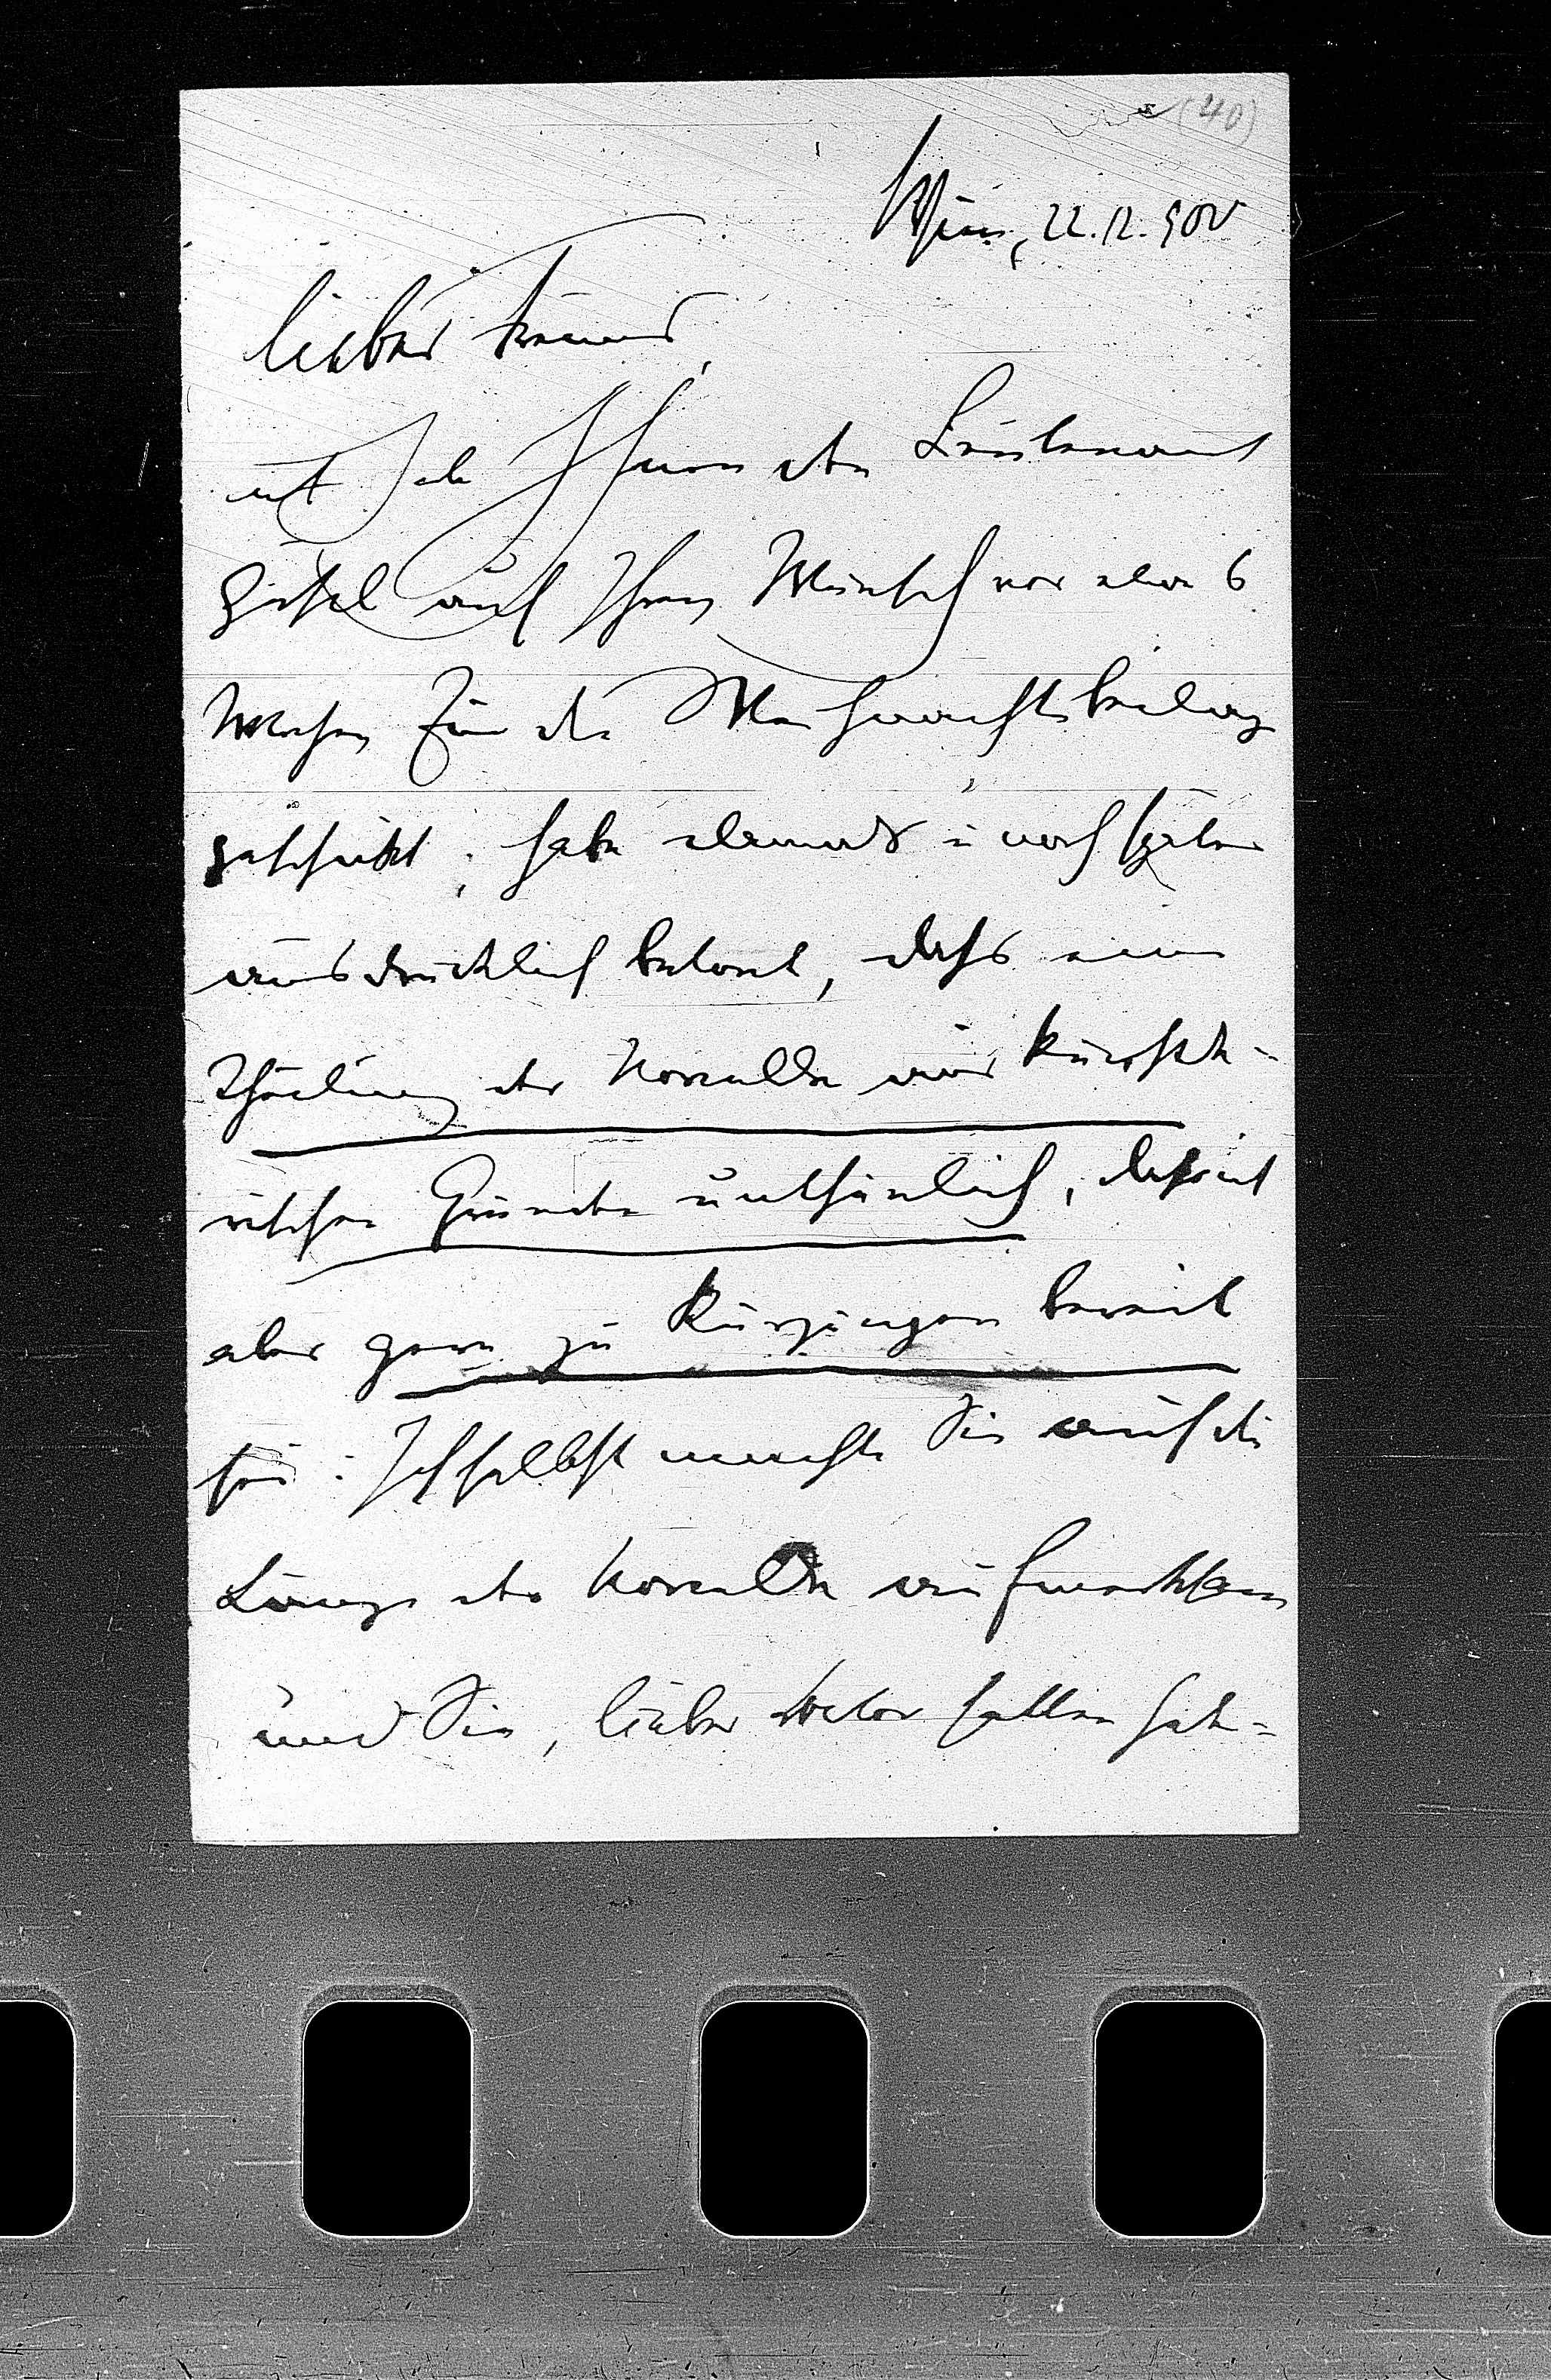 (40)
Wien, 22.12.900
lieber Freund,
ich habe Ihnen den Lieutenant
Gustl auf Ihren Wunsch vor etwa 6
Wochen für die Weihnachtsbeilage
geschickt; habe damals u noch später
ausdrücklich betont, dass eine
Theilung der Novelle aus künstle-
rischen Gründen unthunlich, dass ich
aber gern zu Kürzungen bereit
sei: Ich selbst machte Sie auf die
Länge der Novelle aufmerksam
und Sie, lieber Doctor hatten hate-